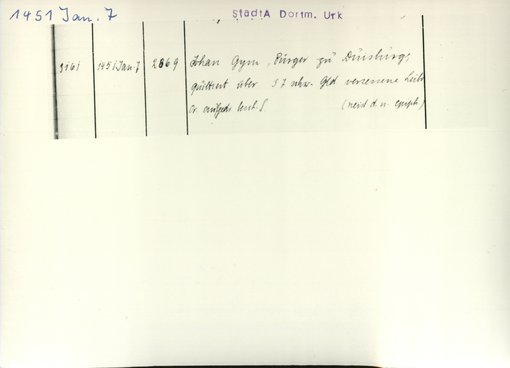 1451 Jan. 7
StadtA Dortm. Urk
3161 1451 Jan. 7 2869 Johan Gym, Bürger zu Duisburg,
quittiert über 57 rhn. Gld versessene Leib
Or. aufgedr. (neid d. u. empf.)